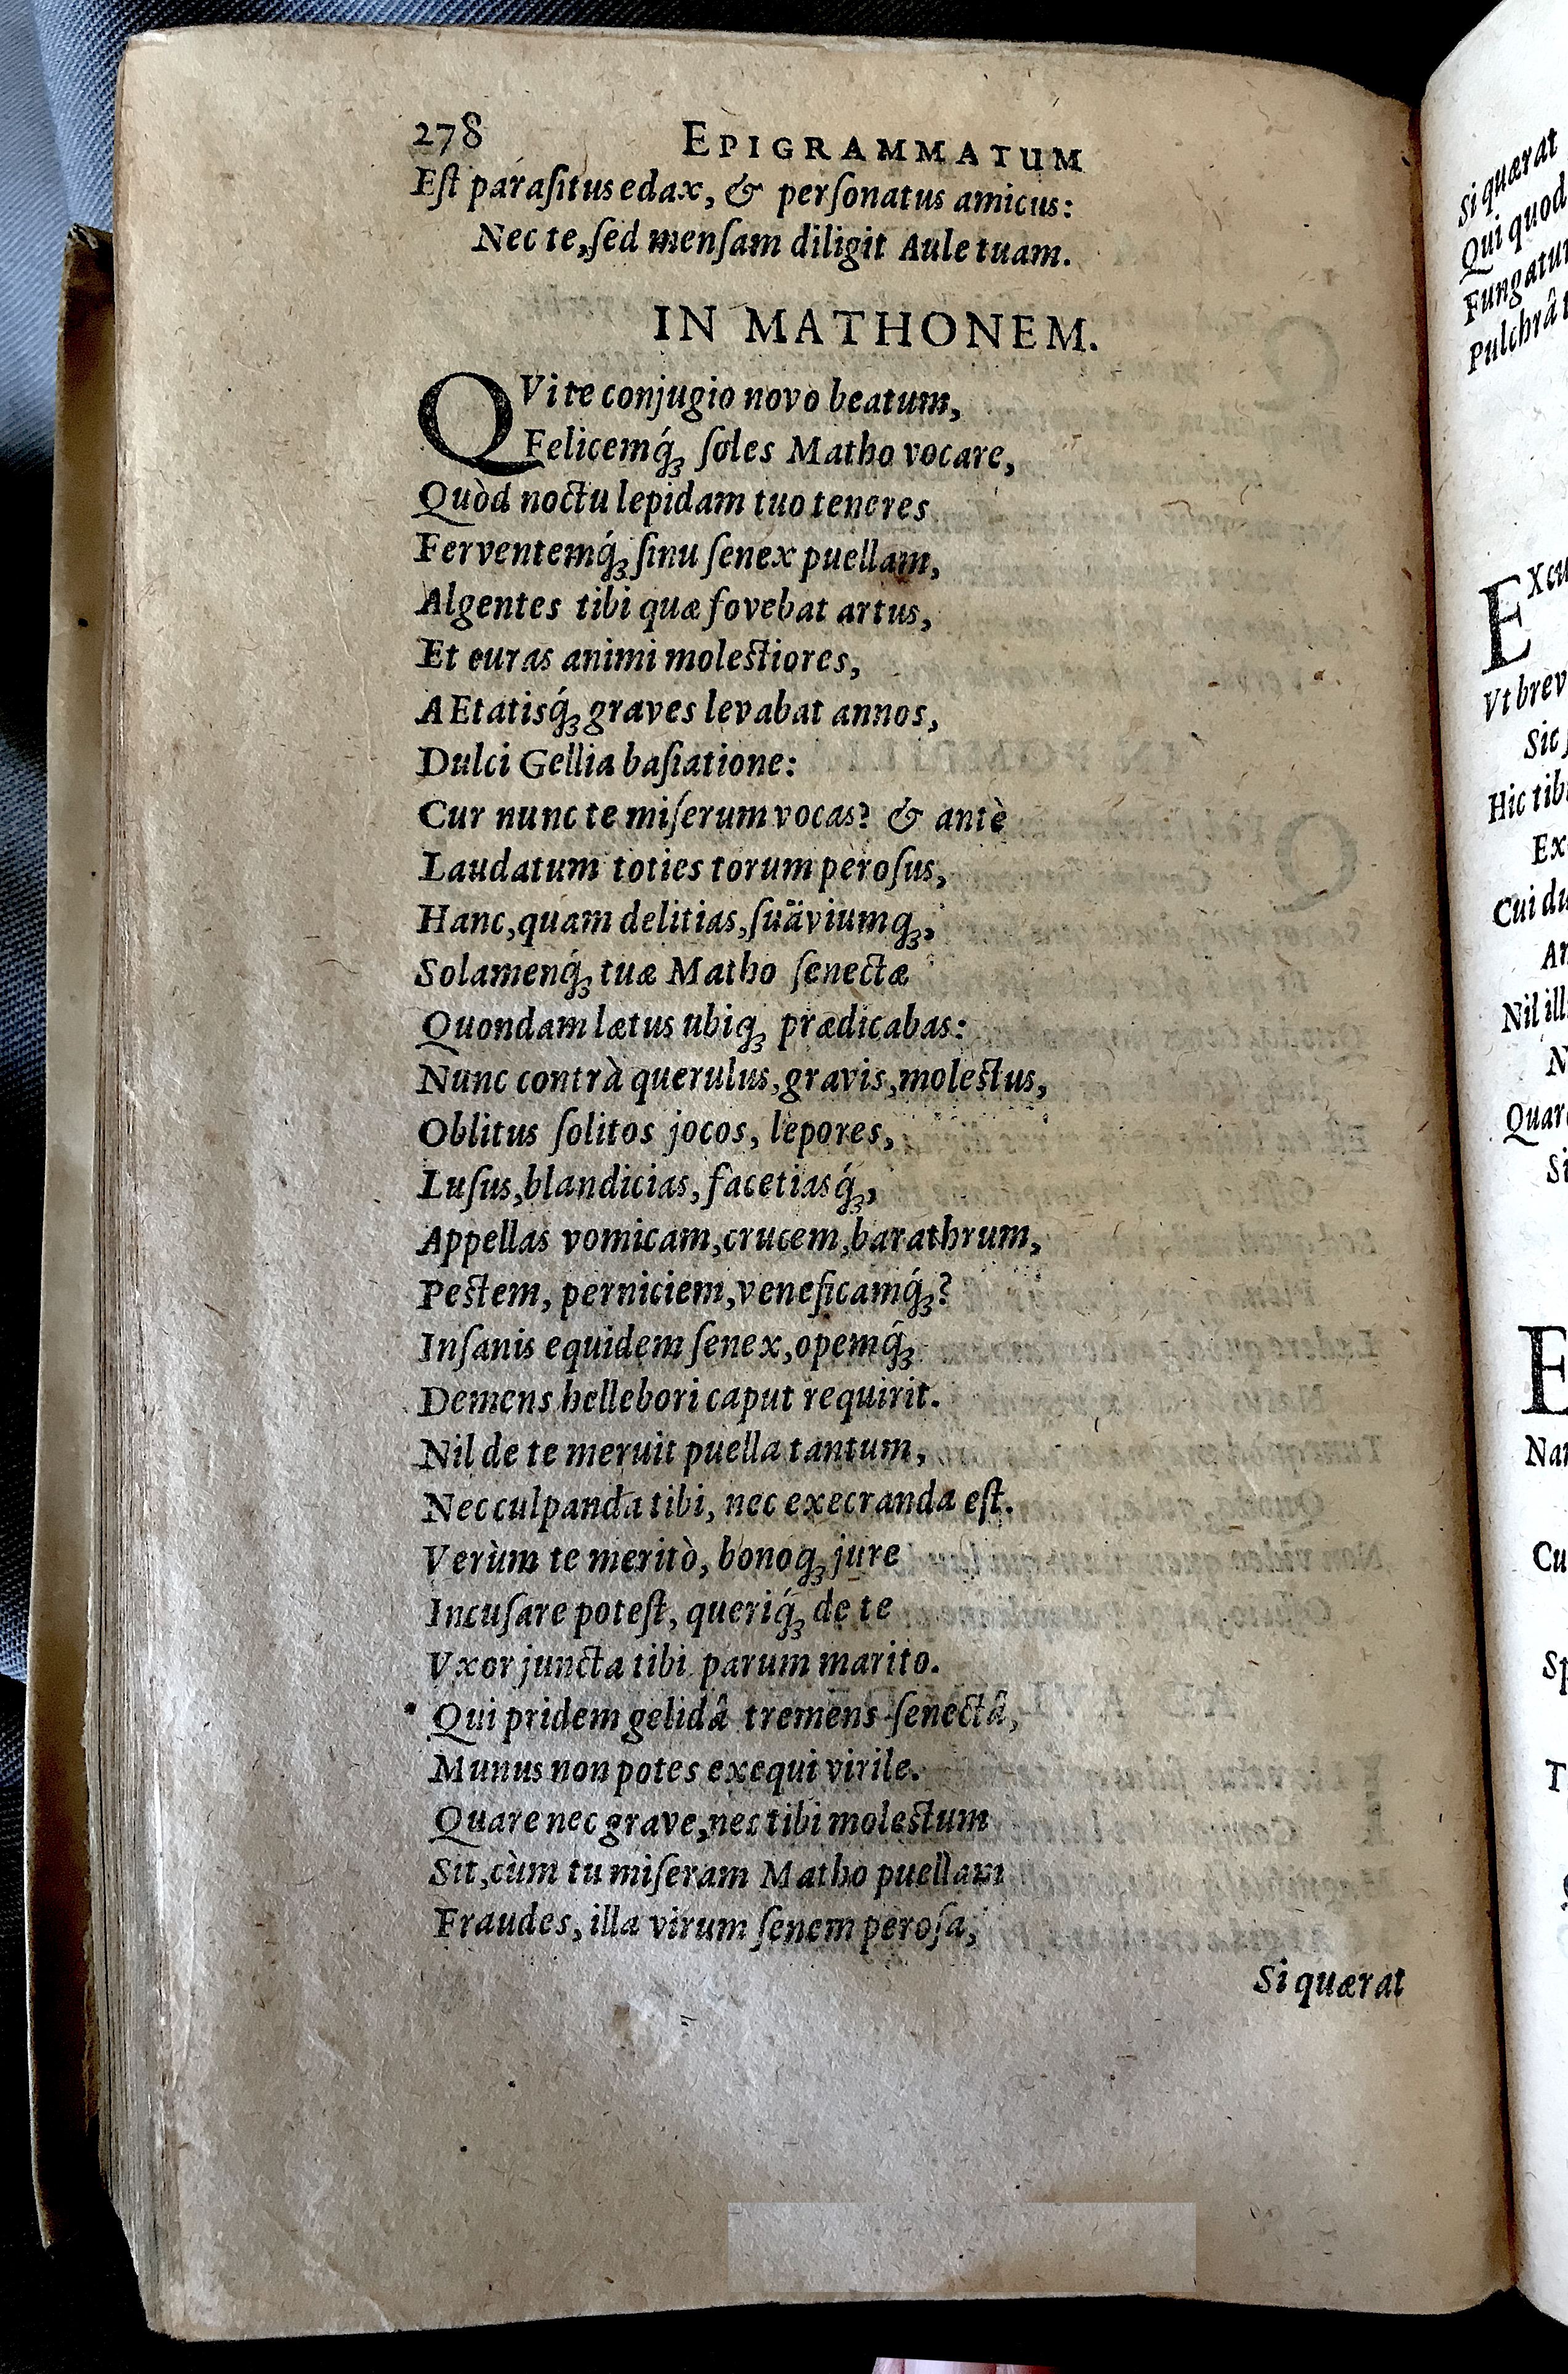 278 EPIGRAMMATUM
Eſt paraſitus edax, & perſonatus amicus:
Nec te, ſed menſam diligit Aule tuam.
IN MATHONEM.
QVi te conjugio novo beatum,
Felicemq́ꝫ ſoles Matho vocare,
Quòd noctu lepidam tuo teneres
Ferventemq́ꝫ ſinu ſenex puellam,
Algentes tibi quæ fovebat artus,
Et curas animi moleſtiores,
AEtatisq́ꝫ graves levabat annos,
Dulci Gellia baſiatione:
Cur nunc te miſerum vocas? & antè
Laudatum toties torum peroſus,
Hanc, quam delitias, ſuäviumqꝫ,
Solamenq́ꝫ tuæ Matho ſenectæ
Quondam lætus ubiqꝫ prædicabas:
Nunc contrà querulus, gravis, moleſtus,
Oblitus ſolitos jocos, lepores,
Luſus, blandicias, facetiasq́ꝫ,
Appellas vomicam, crucem, barathrum,
Peſtem, perniciem, veneficamq́ꝫ?
Inſanis equidem ſenex, opemq́ꝫ
Demens hellebori caput requirit.
Nil de te meruit puella tantum,
Nec culpanda tibi, nec execranda eſt.
Verùm te meritò, bonoqꝫ jure
Incuſare poteſt, queriq́ꝫ de te
Vxor juncta tibi parum marito.
Qui pridem gelidâ tremens ſenectâ,
Munus non potes exequi virile.
Quare nec grave, nec tibi moleſtum
Sit, cùm tu miſeram Matho puellam
Fraudes, illa virum ſenem peroſa,
Si quærat
Si quærat
Qui quod
Pulchrâ
Vt brev
Sic
Hic tib
Ex
Cui du
Nil ill
N
Quar
Si
E
Nar
Cu
Sp
T